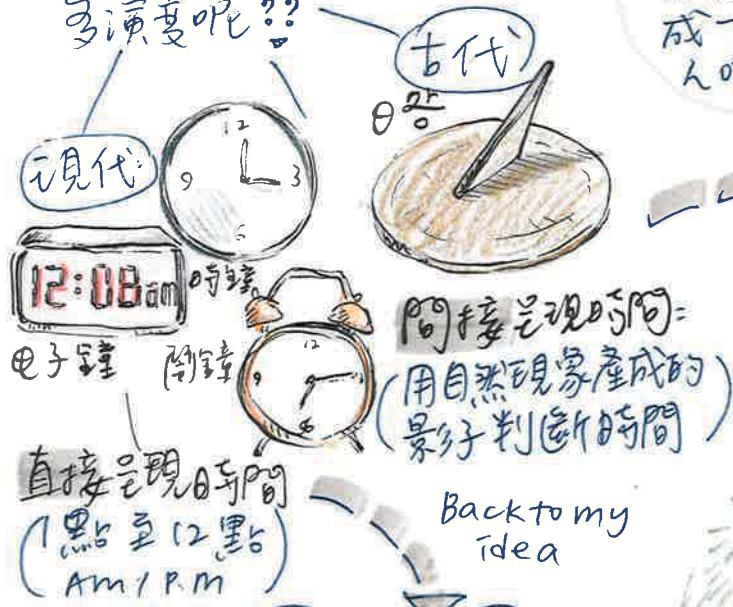 多演變呢??
古代
成一
日晷
現代
12
9
3
6
12:08am
時鐘
电子鐘
鬧鐘
12
9
6
間接呈現時間:
(用自然現象產成的
影子判斷時間)
直接呈現時間
(1點至12點
AM/P.M)
Back to my
idea